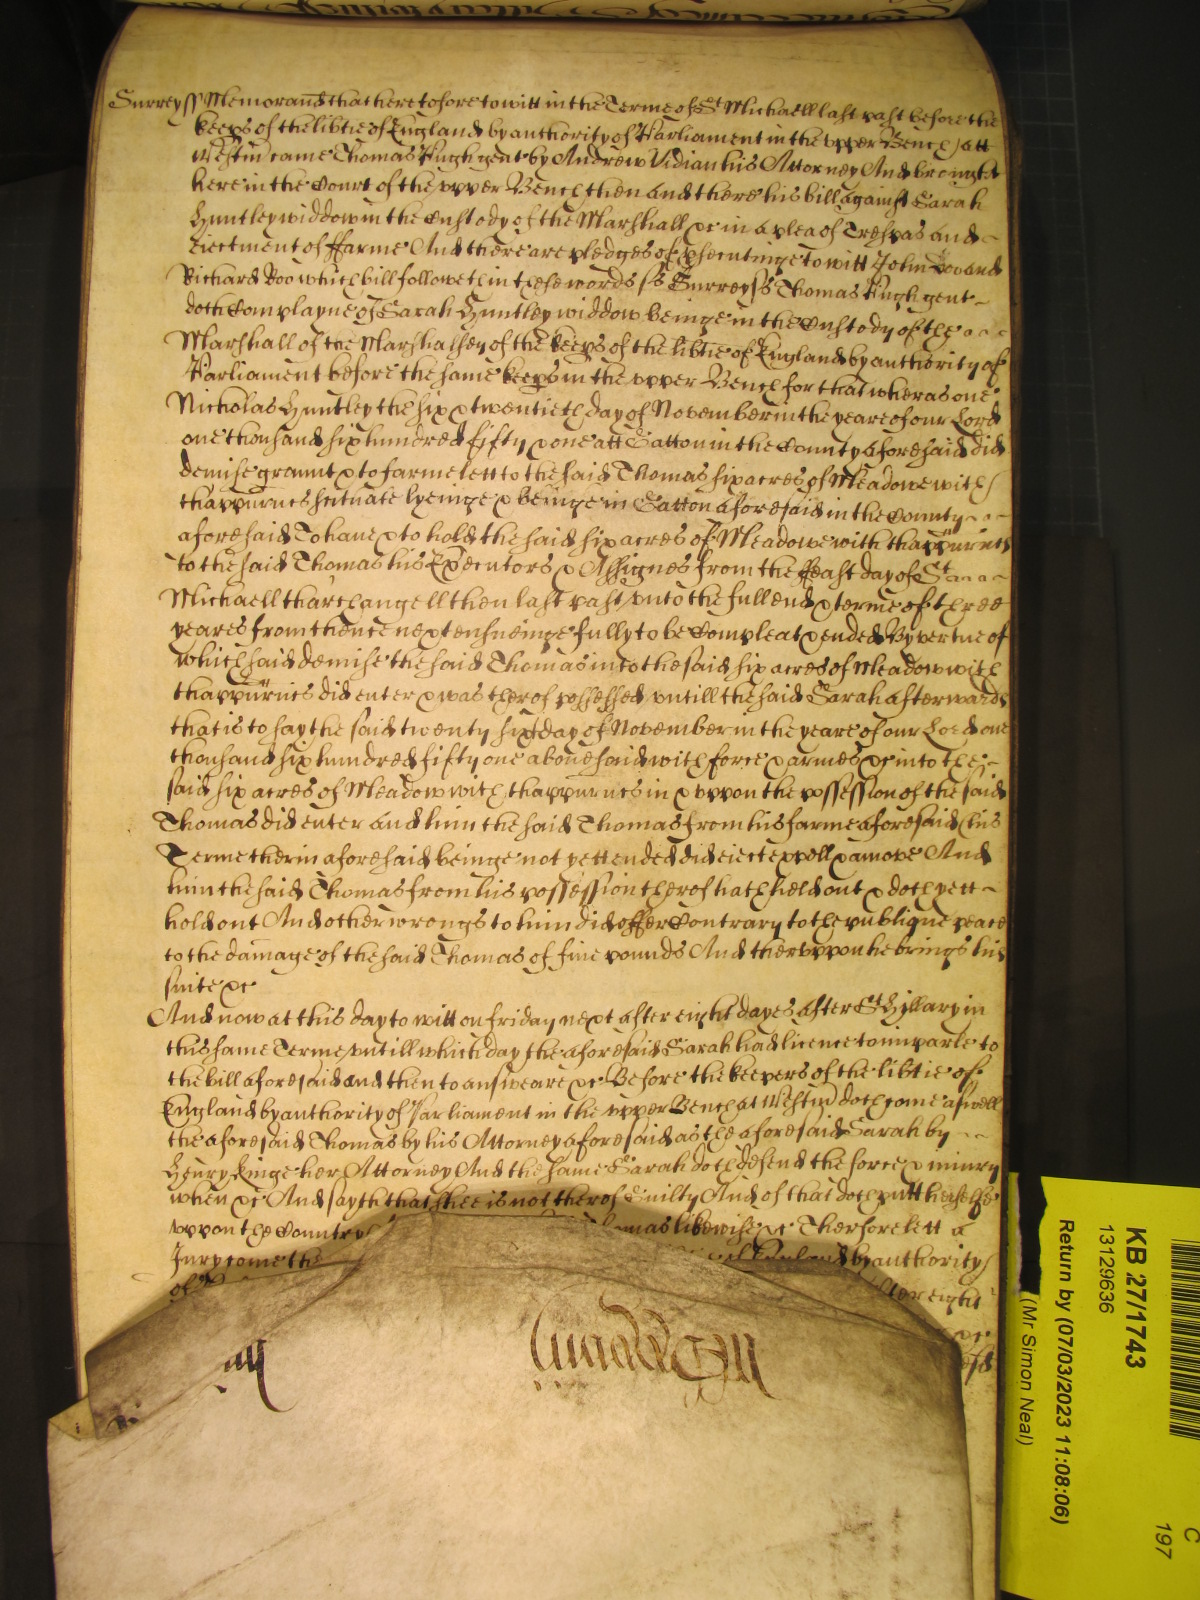 Surrey ss Memorand that heretofore to witt in the Terme of St Michaell last past before the
keeps of the libtie of England by authority of Parliament in the upper Bench att
Westm came Thomas Pugh gent by Andrew Vidian his Attorney And brought
here in the Court of the upper Bench then and there his bill against Sarah
Huntley widdow in the Custody of the Marshall &c in a plea of Trespas and
Eiectment of ffarme And there are pledges of psecutinge to witt John Doo and
Richard Roo which bill followeth in these words ss Surrey ss Thomas Pugh gent
doth Complayne of Sarah Huntley widdow beinge in the Custody of the
Marshall of the Marshalsey of the keeps of the libtie of England by authority of
Parliament before the same keeps in the upper Bench for that wheras one
Nicholas Huntley the six & twentieth day of November in the yeare of our Lord
one thousand six hundred fifty & one att Gatton in the County aforesaid did
demise graunt & to farme lett to the said Thomas six acres of Meadowe with
thappurtncs scituate lyeinge & beinge in Gatton aforesaid in the County
aforesaid To have & to hold the said six acres of Meadowe with thappurtncs
to the said Thomas his Executors & Assignes from the ffeast day of St
Michaell tharchangell then last past unto the full end & terme of three
yeares from thence next ensueinge fully to be Compleat & ended By vertue of
which said demise the said Thomas into the said six acres of Meadow with
thappurtncs did enter & was therof possessed untill the said Sarah afterwards
that is to say the said twenty sixt day of November in the yeare of our Lord one
thousand six hundred fifty one abovesaid with force & armes &c into the
said six acres of Meadow with thappurtncs in & uppon the possession of the said
Thomas did enter and him the said Thomas from his farme aforesaid his
Terme therin aforesaid beinge not yett ended did eiect expell & amove And
him the said Thomas from his possession therof hath held out & doth yett
hold out And other wrongs to him did offer Contrary to the publique peace
to the damage of the said Thomas of five pounds And theruppon he brings his
suite &c
And now at this day to witt on friday next after eight dayes after St Hillary in
this same Terme untill which day the aforesaid Sarah had licence to imparle to
the bill aforesaid and then to answeare &c Before the keepers of the libtie of
England by authority of Parliament in the upper Bench at Westm doth come aswell
the aforesaid Thomas by his Attorney aforesaid as the aforesaid Sarah by
Henry Kinge her Attorney And the same Sarah doth defend the force & iniury
when &c And sayth that shee is not therof Guilty And of that doth putt herselfe
uppon the Country likewise &c Therfore lett a
Jury come England by authority
of after eight
&c
KB 27/1743
13129636
Return by (07/03/2023 11:08:06)
(Mr Simon Neal)
C
197